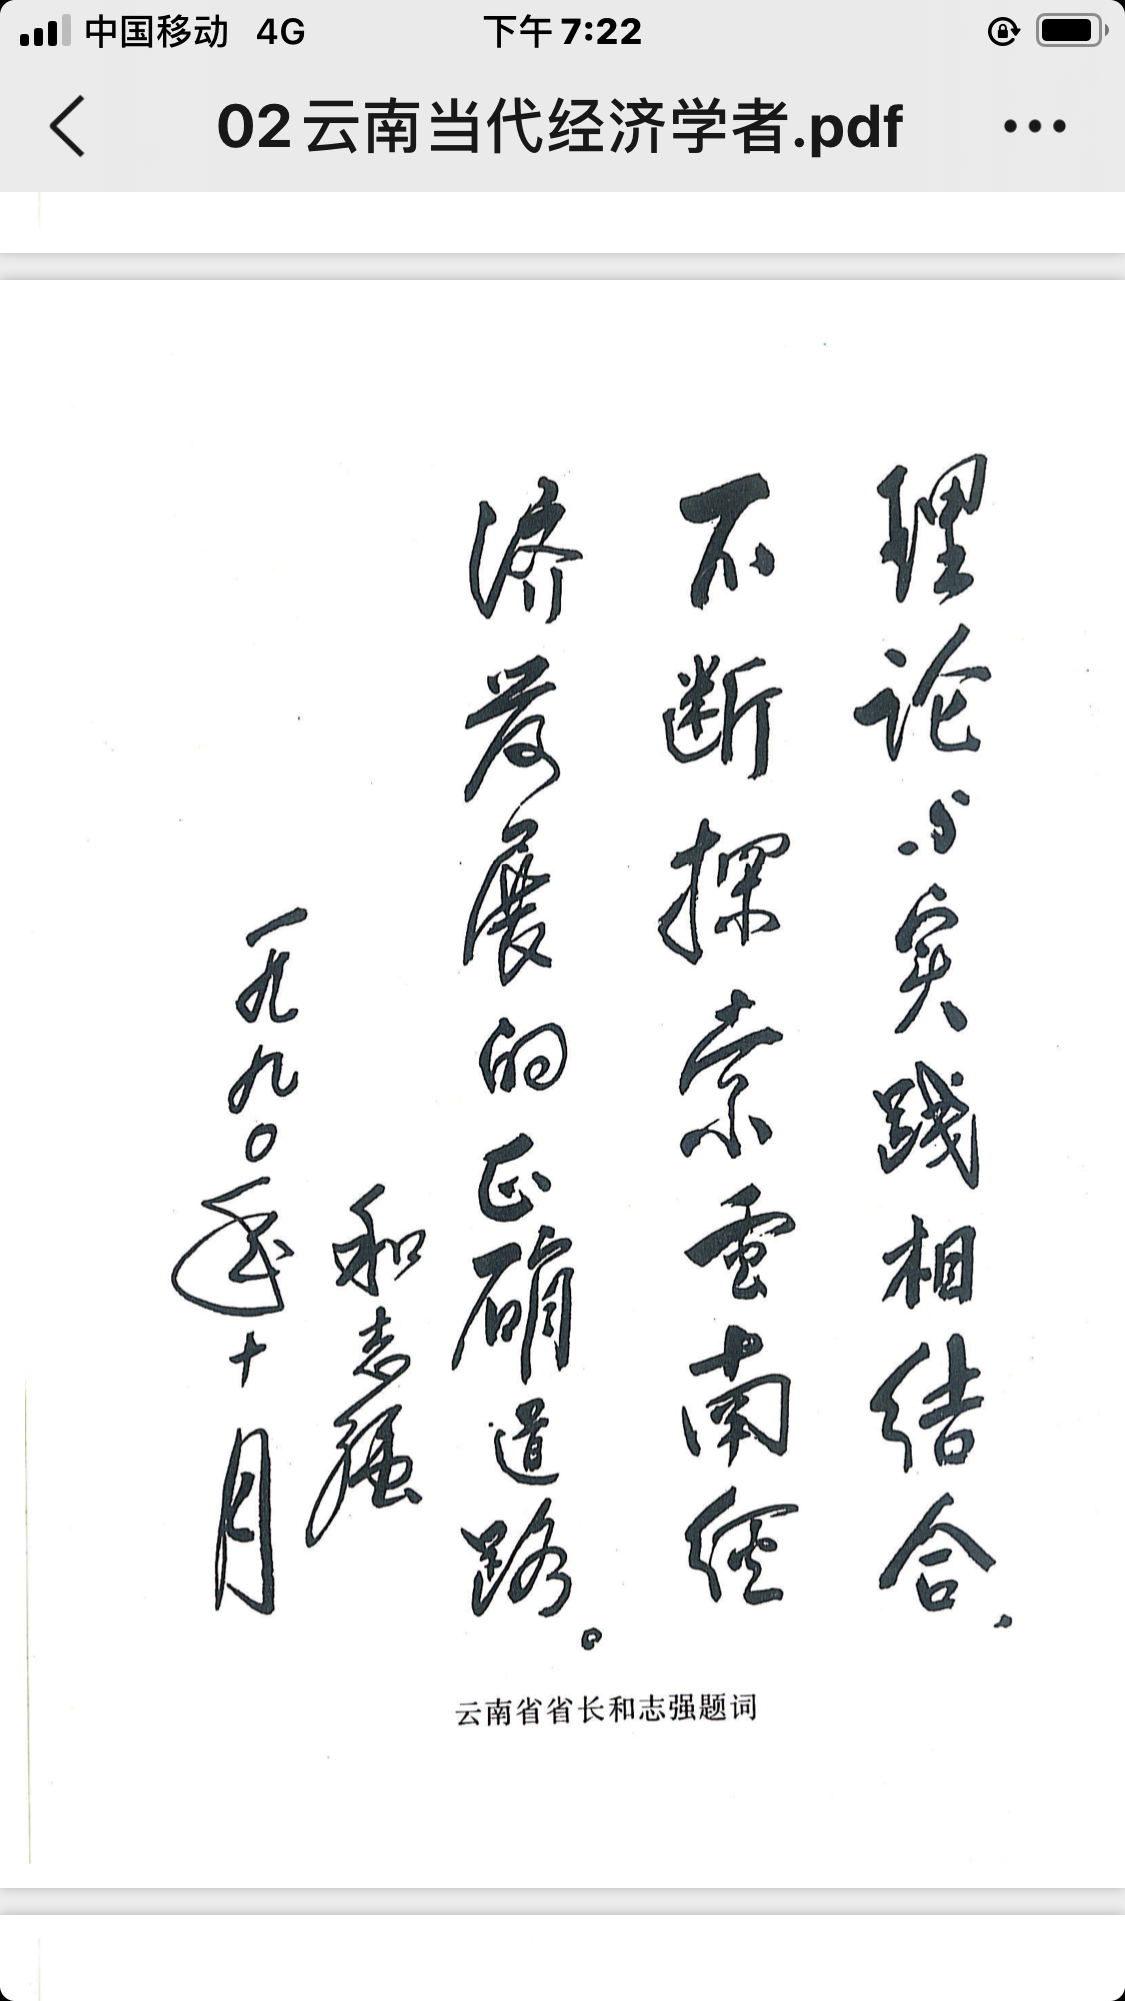 中国移动 4G 下午7:22
02云南当代经济学者.pdf
理论与实践相结合.
不断探索雲南经
济发展的正确道路。
和志强
一九九〇年十月
云南省省长和志强题词